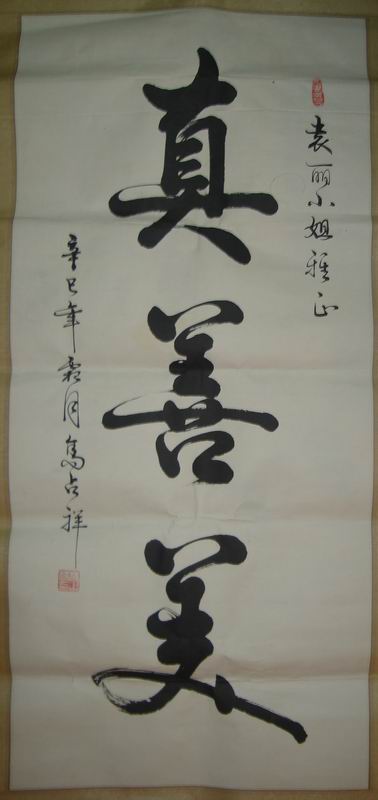 袁丽小姐雅正
真善美
辛巳年霜月马占祥